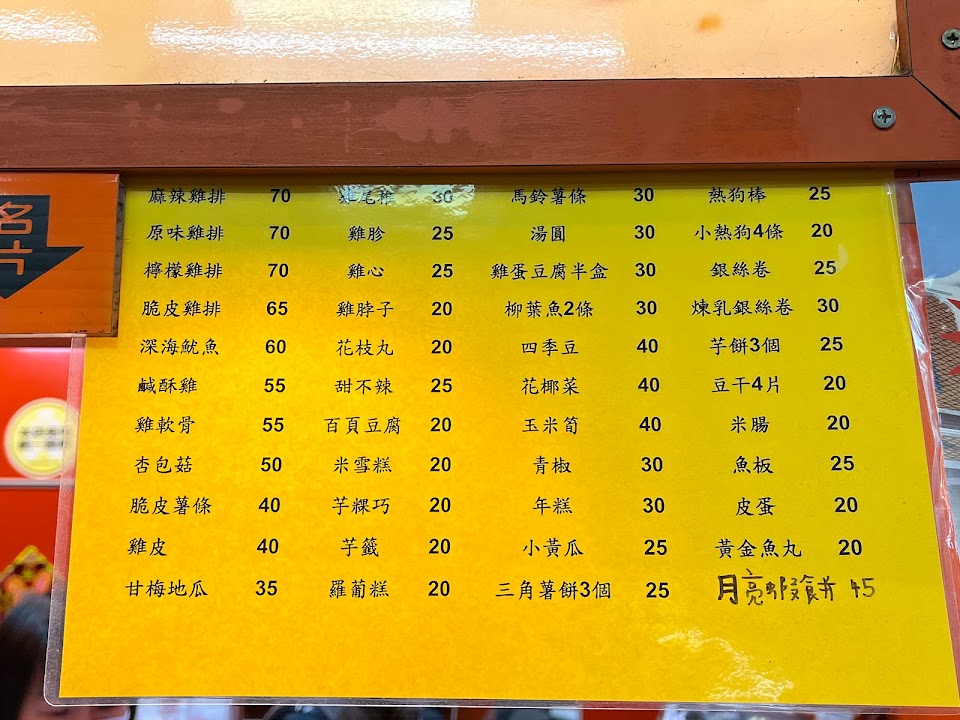 名片
麻辣雞排 70 雞尾椎 30 馬鈴薯條 30 熱狗棒 25
原味雞排 70 雞胗 25 湯圓 30 小熱狗4條 20
檸檬雞排 70 雞心 25 雞蛋豆腐半盒 30 銀絲卷 25
脆皮雞排 65 雞脖子 20 柳葉魚2條 30 煉乳銀絲卷 30
深海魷魚 60 花枝丸 20 四季豆 40 芋餅3個 25
鹹酥雞 55 甜不辣 25 花椰菜 40 豆干4片 20
雞軟骨 55 百頁豆腐 20 玉米筍 40 米腸 20
杏包菇 50 米雪糕 20 青椒 30 魚板 25
脆皮薯條 40 芋粿巧 20 年糕 30 皮蛋 20
雞皮 40 芋籤 20 小黃瓜 25 黃金魚丸 20
甘梅地瓜 35 羅葡糕 20 三角薯餅3個 25 月亮蝦餅 45